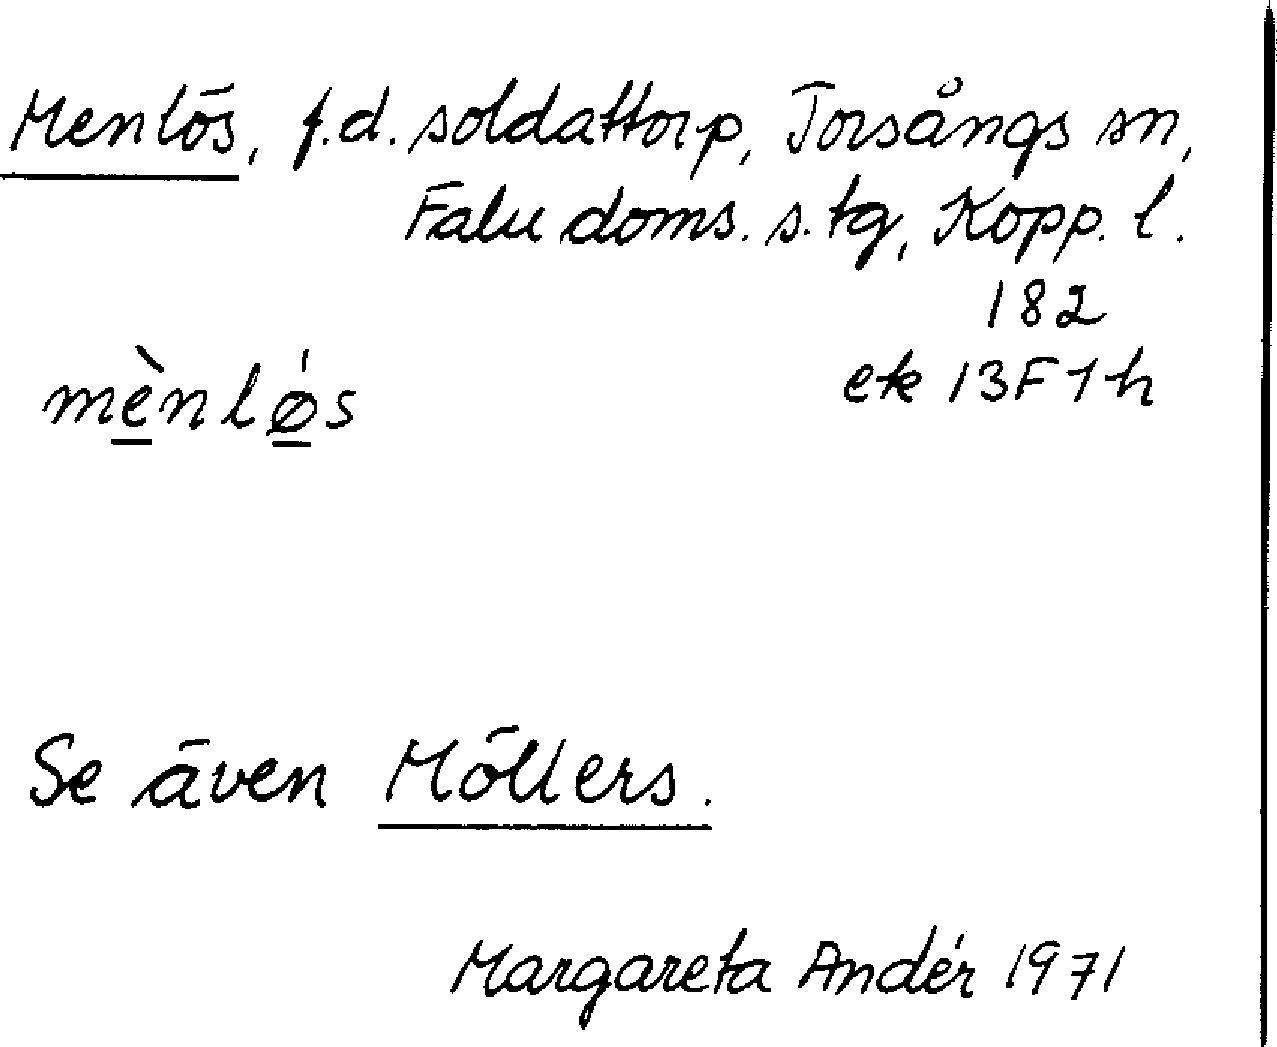 Menlös, f.d. soldattorp, Torsångs sn,
Falu doms. s. tg, Kopp. l.
182
ek 13F1h
mènlǿs
Se även Möllers.
Margareta Andér 1971